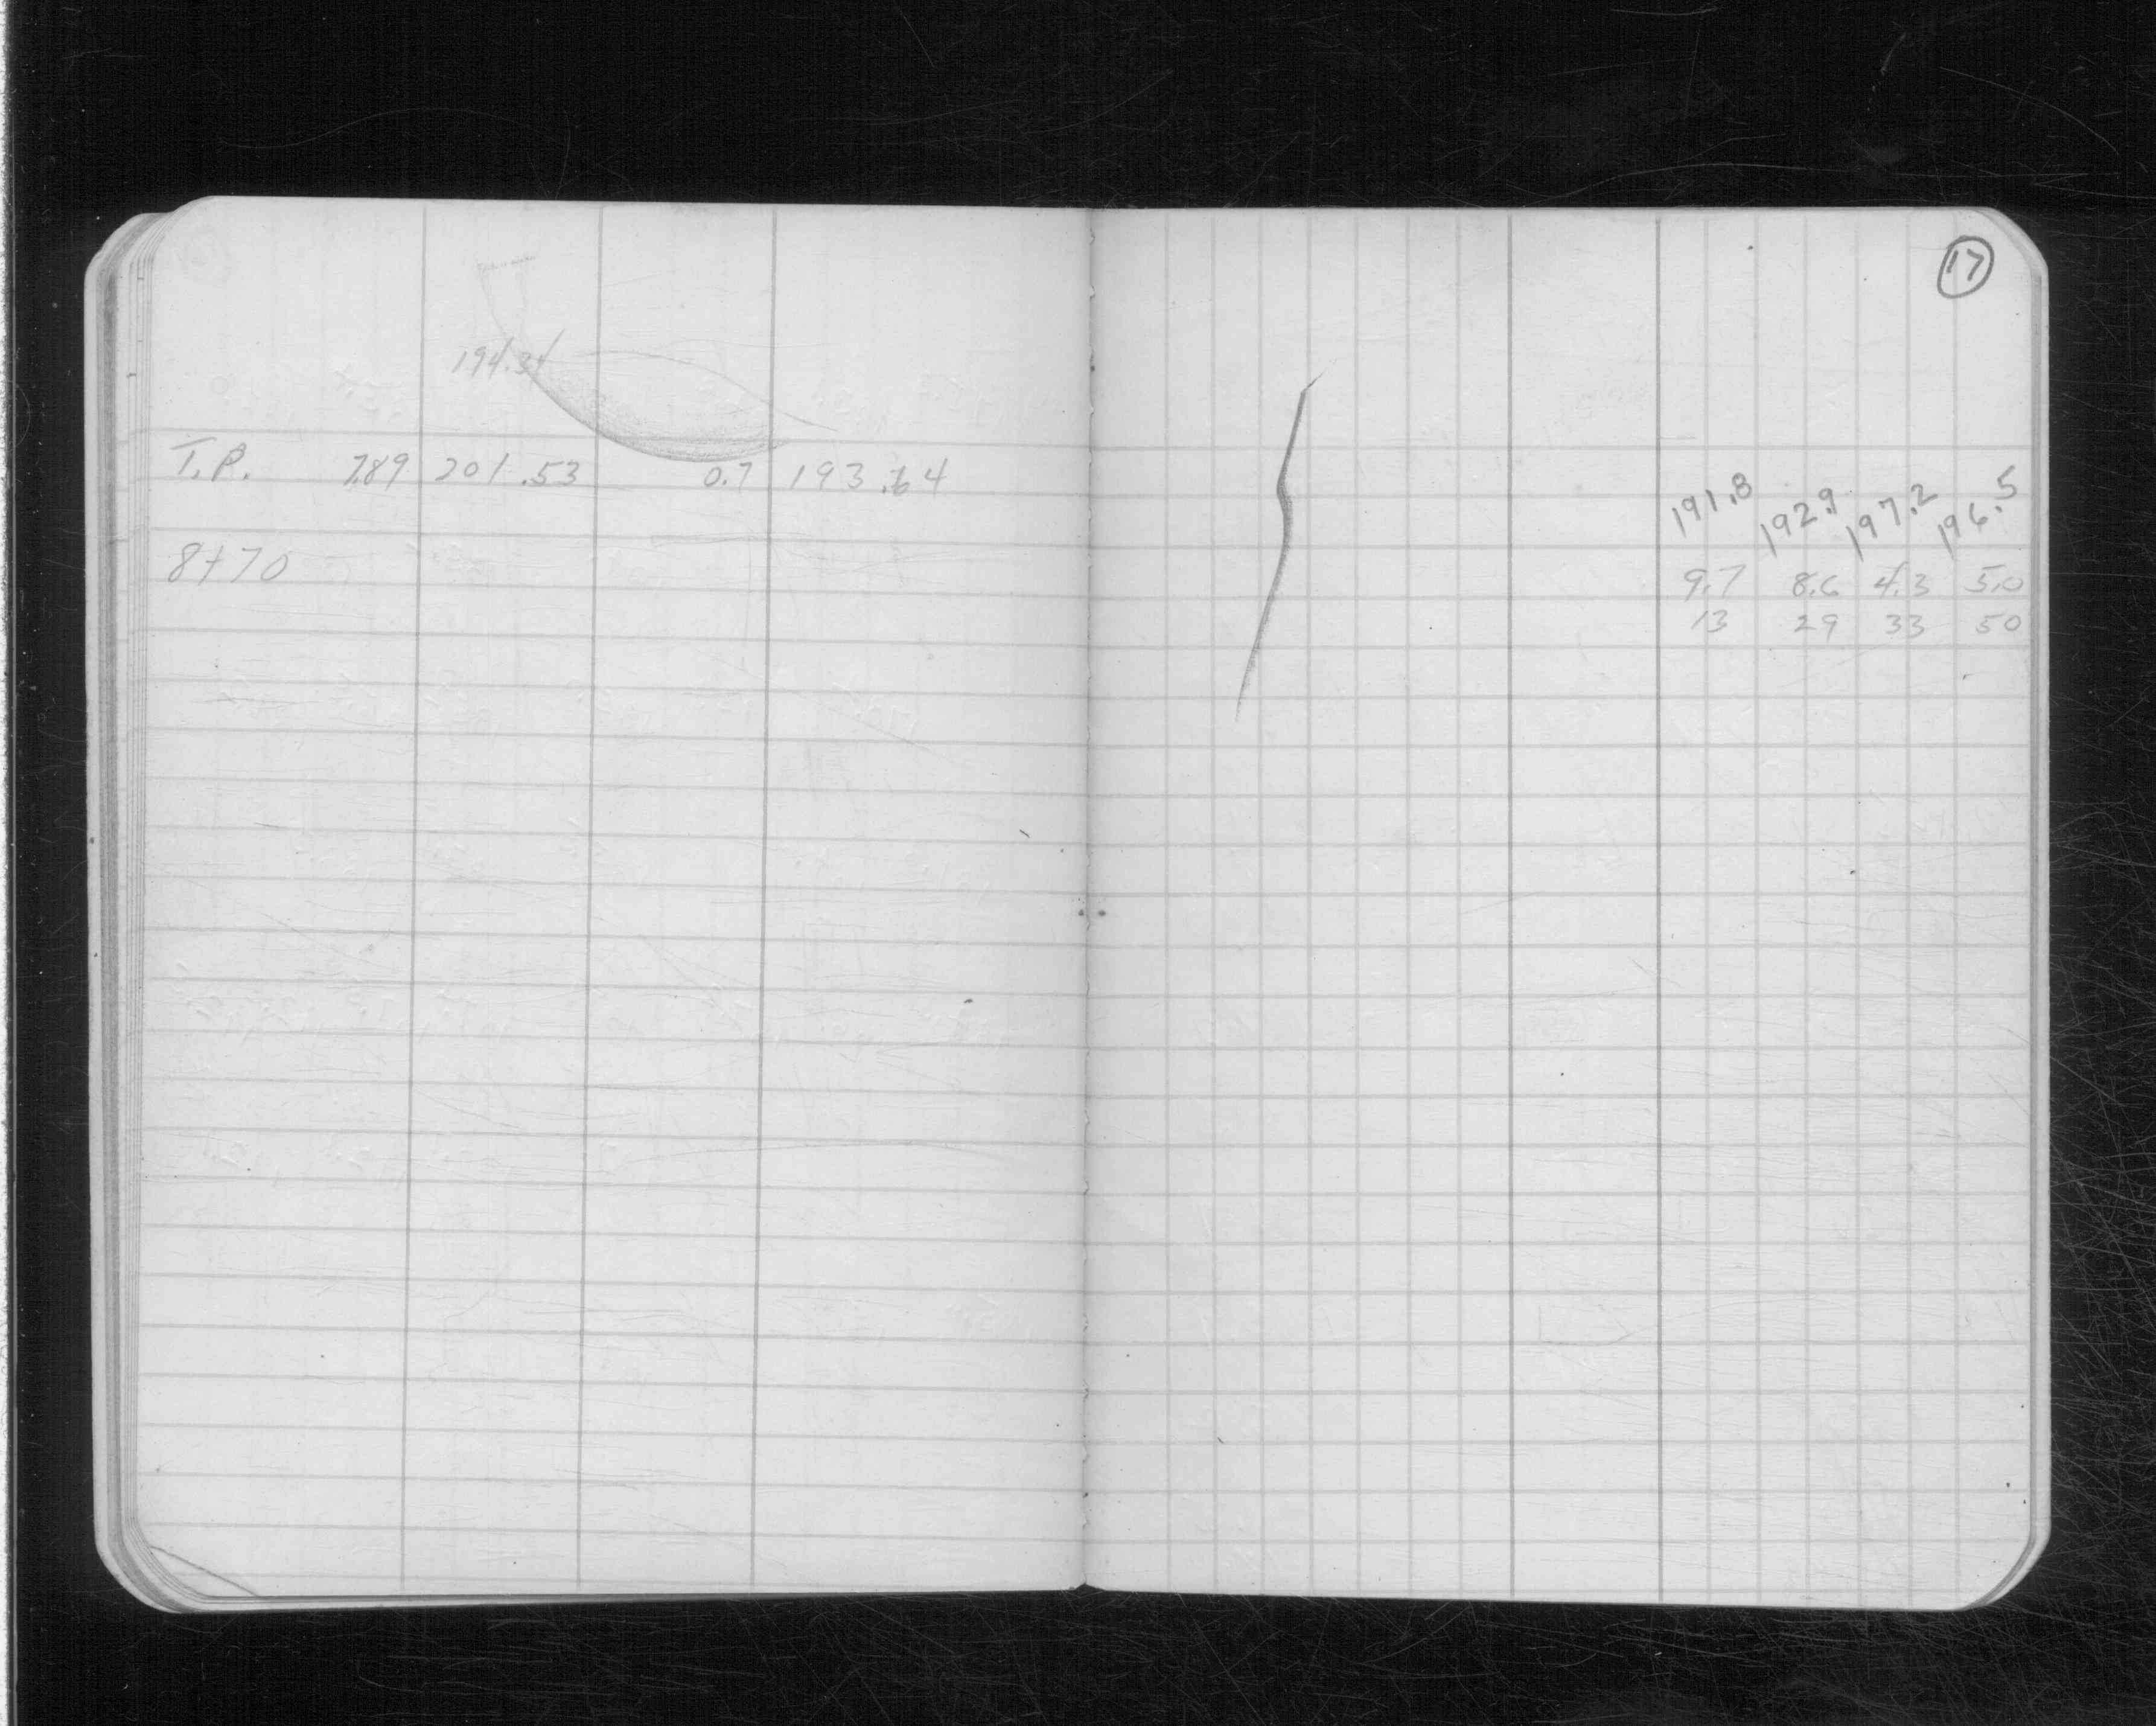 17
194.34
T.P. 7.89 201.53 0.7 193.64
191.8 192.9 197.2 196.5
8+70 9.7 8.6 4.3 5.0
13 29 33 50